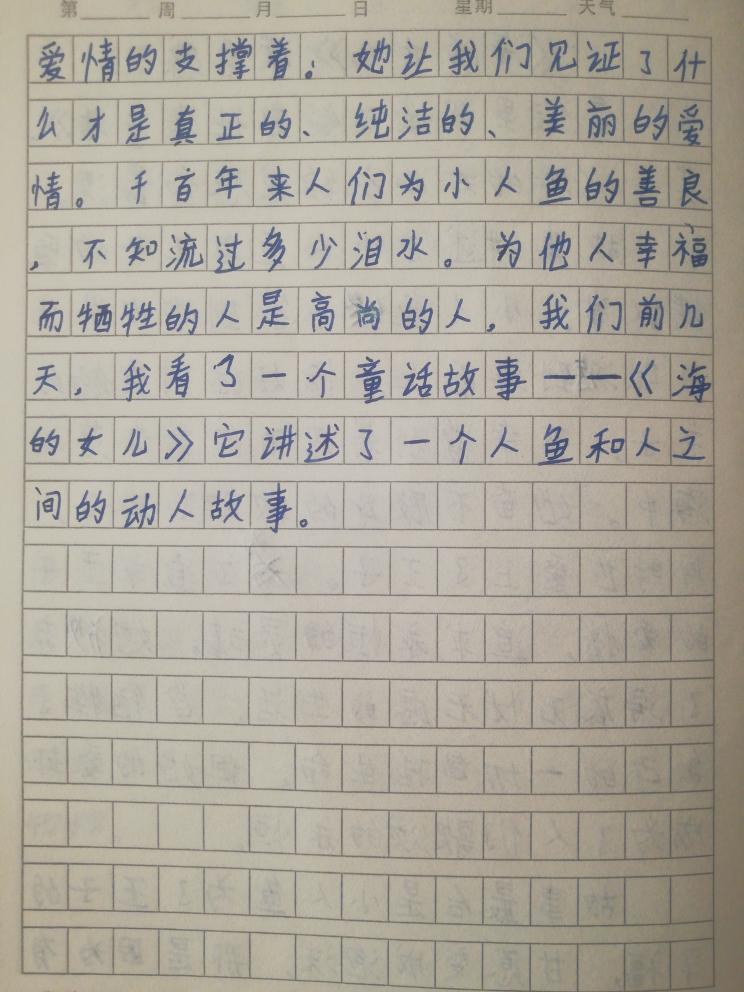 第 周 月 日 星期 天气
爱情的支撑着；她让我们见证了什
么才是真正的、纯洁的、美丽的爱
情。千百年来人们为小人鱼的善良
，不知流过多少泪水。为他人幸福
而牺牲的人是高尚的人，我们前几
天，我看了一个童话故事——《海
的女儿》它讲述了一个人鱼和人之
间的动人故事。